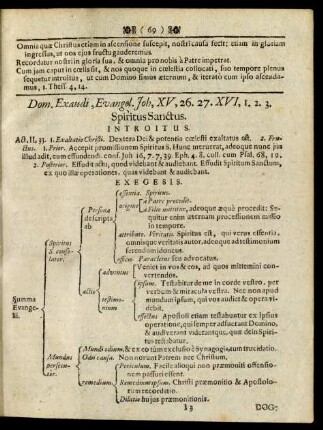 ( 69 )
Omnia quæ Christus etiam in ascensione suscepit, nostri causa fecit; etiam in gloriam
ingressus, ut nos ejus fructu gauderemus
Recordatur nostri in gloria sua, & omnia pro nobis à Patre impetrat.
Cum jam caput in cœlis sit, & nos quoque in cœlestia collocati, suo tempore plenus
sequetur introitus, ut cum Domino simus æternum, & iterato cum ipso ascenda-
mus, 1. Thess. 4, 14.
Dom. Exaudi, Evangel. Joh, XV, 26. 27. XVI, 1. 2. 3.
Spiritus Sanctus.
INTROITUS.
Act. II, 33. 1. Exaltatio Christi. Dextera Dei & potentia cœlesti exaltatus est. 2. Fru-
ctus. 1. Prior. Accepit promissionem Spiritus S. Hunc meruerat, adeoque nunc jus
illud adit, eum effundendi. conf. Joh 16, 7. 7, 39 Eph. 4, 8. coll. cum Psal. 68, 19.
2. Posterior. Effudit actu, quod videbant & audiebant. Effudit Spiritum Sanctum,
ex quo illæ operationes, quas videbant & audiebant.
EXEGESIS.
essentia. Spiritus.
origine
a Patre procedit.
a Filio mittitur, adeoque æquè procedit: Se-
quitur enim æternam processionem missio
in tempore.
Persona
descripta
ab
attributo. Veritatis. Spiritus est, qui verus essentia,
omnisque veritatis autor, adeoque ad testimonium
ferendum idoneus.
officio Paracletus seu advocatus.
Spiritus
S. conso-
lator.
actio
adventus
Veniet in vos & eos, ad quos mittemini con-
vertendos.
testimo-
nium
ipsum. Testabitur de me in corde vestro, per
verbum & miracula vestra. Nec non apud
mundum ipsum, qui vos audiet & opera vi-
debit.
effectus Apostoli etiam testabuntur ex ipsius
operatione, qui semper adfuerant Domino,
& audiverant viderantque, quæ dein Spiri-
tus testabatur.
Summa
Evange-
lii.
Mundus
persecu-
tor.
Mundi odium, & ex eo tùm exclusio è Synagogis, tum trucidatio.
Odii causa. Non norunt Patrem nec Christum.
remedium
Periculum. Facile alioqui non præmoniti offensio-
nem passuri essent.
Remedium ipsum. Christi præmonitio & Apostolo-
rum recordatio.
Dilatio hujus præmonitionis.
I 3
DOG-